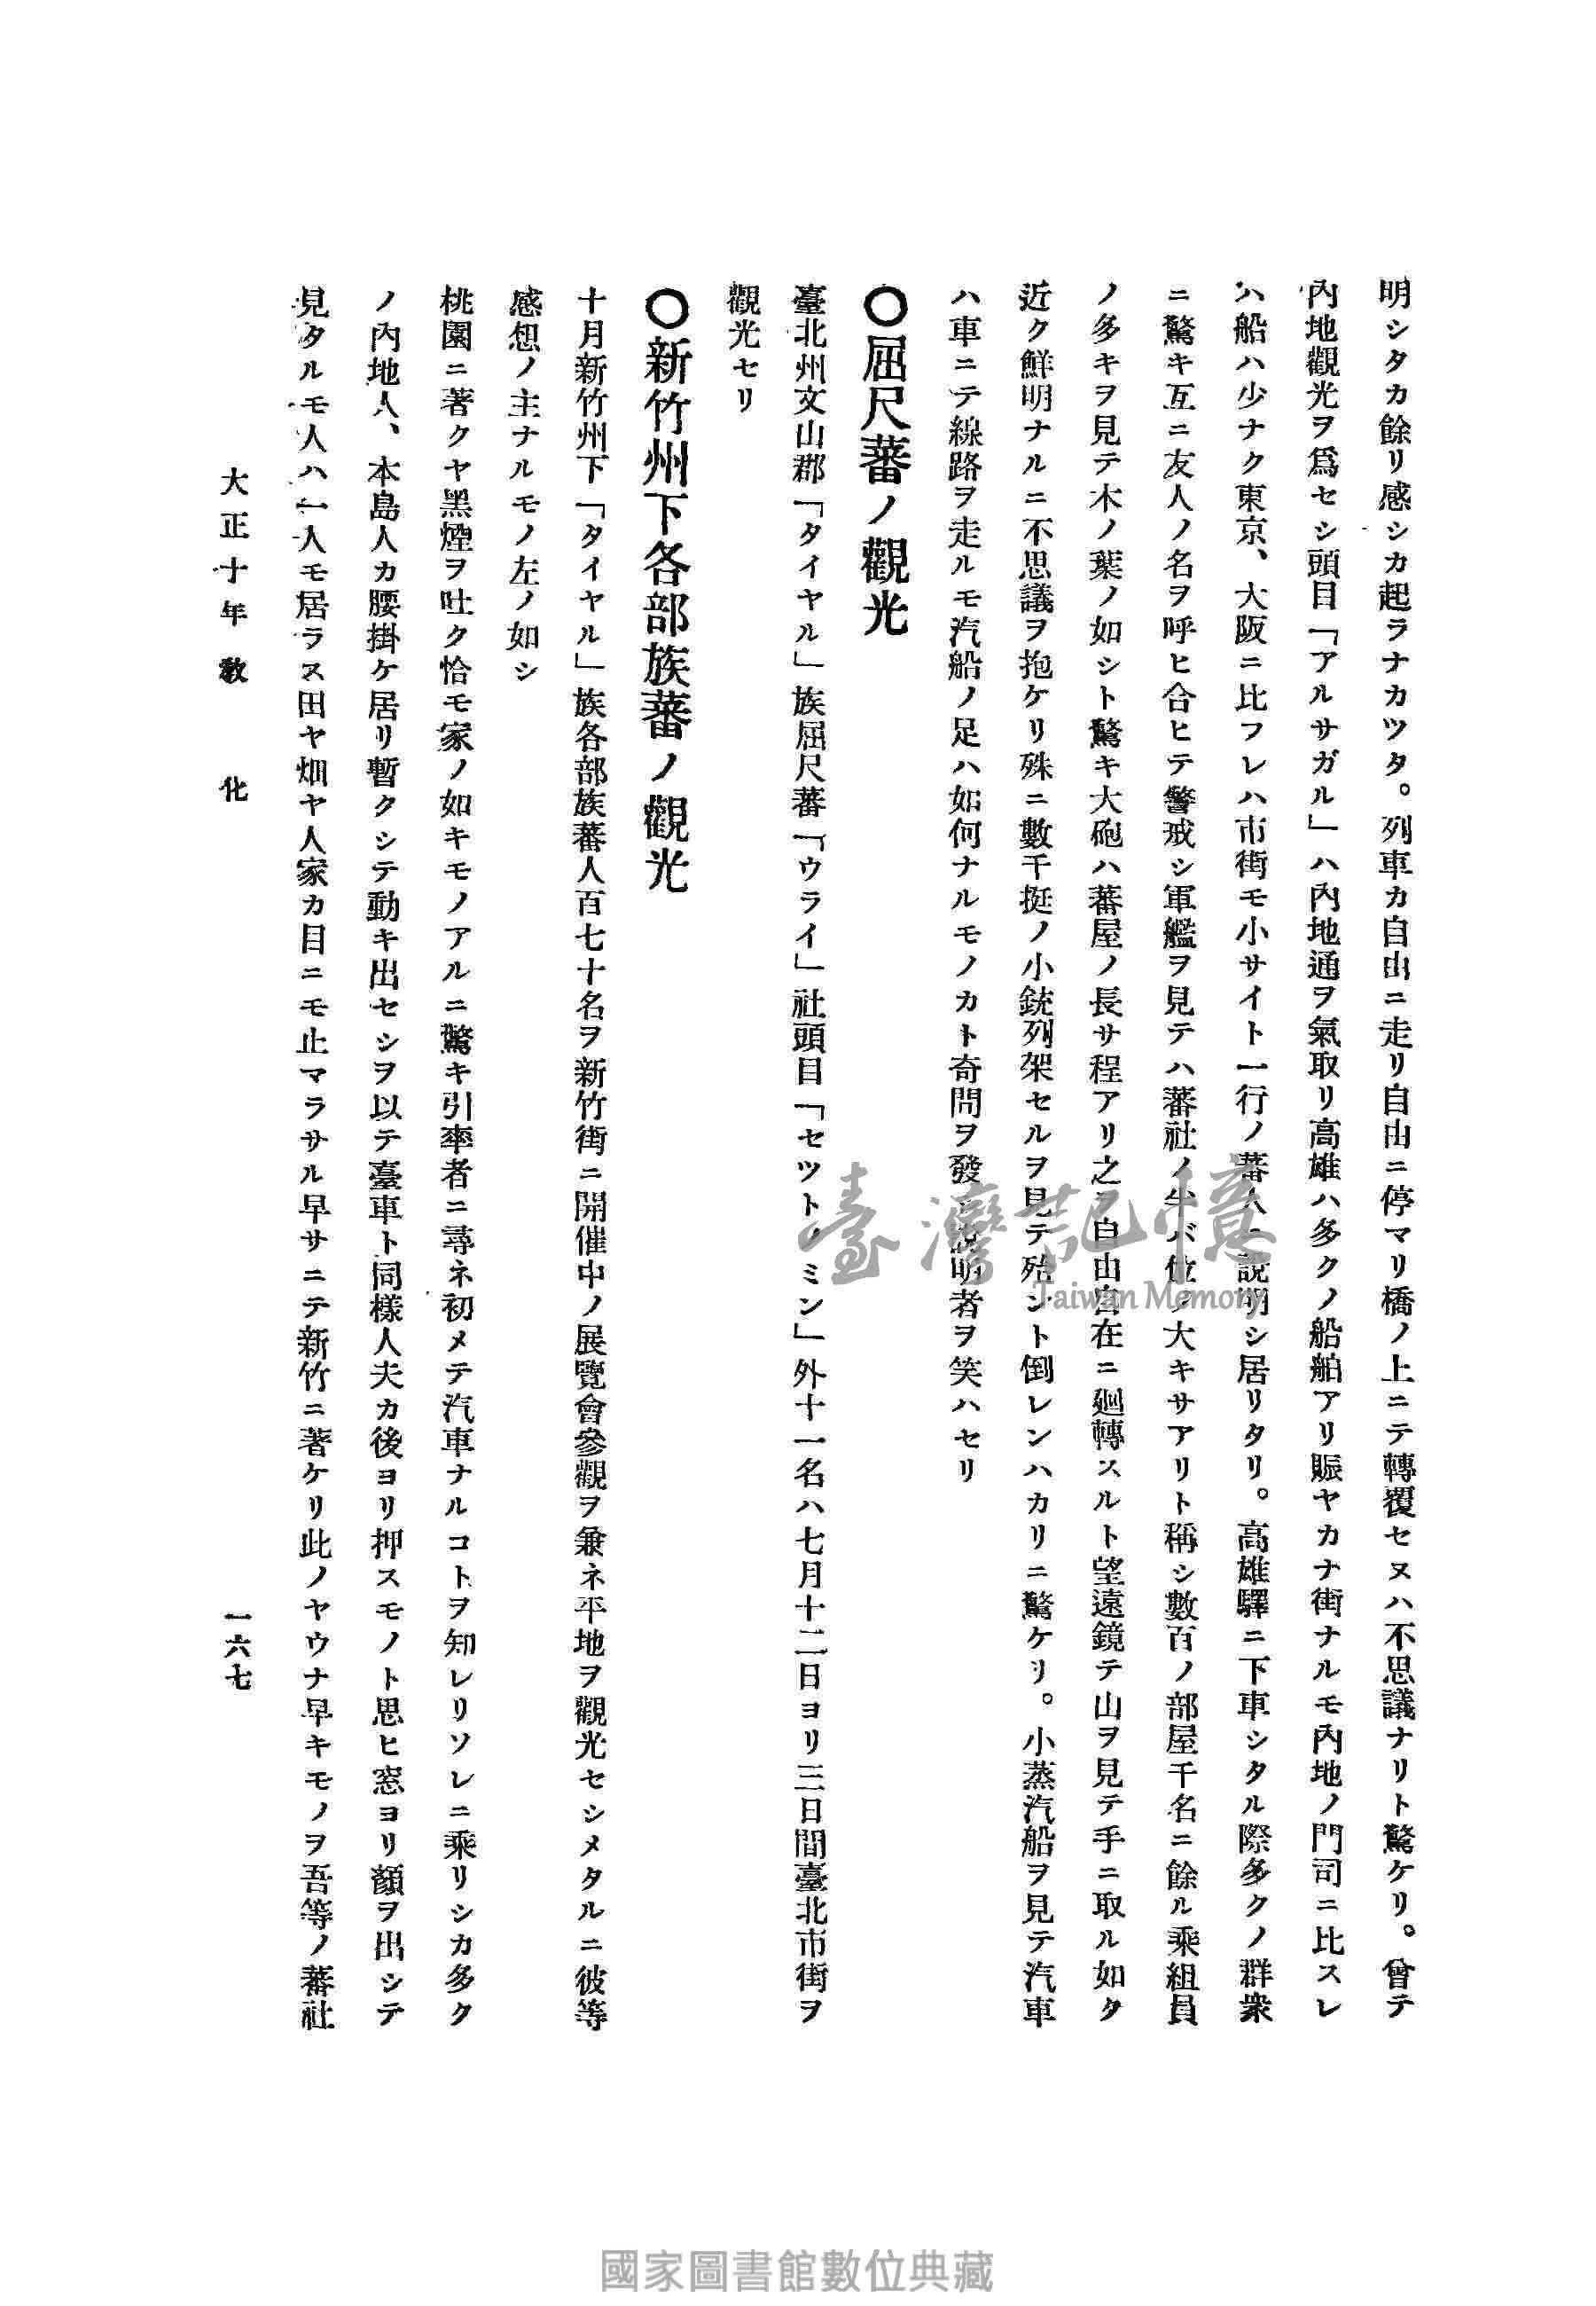 明シタカ餘リ感シカ起ラナカツタ。列車カ自由ニ走リ自由ニ停マリ橋ノ上ニテ轉覆セヌハ不思議ナリト驚ケリ。曾テ
內地觀光ヲ爲セシ頭目「アルサガル」ハ內地通ヲ氣取リ高雄ハ多クノ船舶アリ賑ヤカナ街ナルモ內地ノ門司ニ比スレ
ハ船ハ少ナク東京、大阪ニ比フレハ市街モ小サイト一行ノ蕃人ニ說明シ居リタリ。高雄驛ニ下車シタル際多クノ群衆
ニ驚キ互ニ友人ノ名ヲ呼ヒ合ヒテ警戒シ軍艦ヲ見テハ蕃社ノ半バ位ノ大キサアリト稱シ數百ノ部屋千名ニ餘ル乘組員
ノ多キヲ見テ木ノ葉ノ如シト驚キ大砲ハ蕃屋ノ長サ程アリ之ヲ自由自在ニ廻轉スルト望遠鏡テ山ヲ見テ手ニ取ル如ク
近ク鮮明ナルニ不思議ヲ抱ケリ殊ニ數千挺ノ小銃列架セルヲ見テ殆ント倒レンハカリニ驚ケリ。小蒸汽船ヲ見テ汽車
ハ車ニテ線路ヲ走ルモ汽船ノ足ハ如何ナルモノカト奇問ヲ發シ說明者ヲ笑ハセリ
〇屈尺蕃ノ觀光
臺北州文山郡「タイヤル」族屈尺蕃「ウライ」社頭目「セツトノミン」外十一名ハ七月十二日ヨリ三日間臺北市街ヲ
觀光セリ
〇新竹州下各部族蕃ノ觀光
十月新竹州下「タイヤル」族各部族蕃人百七十名ヲ新竹街ニ開催中ノ展覽會參觀ヲ兼ネ平地ヲ觀光セシメタルニ彼等
感想ノ主ナルモノ左ノ如シ
桃園ニ著クヤ黑煙ヲ吐ク恰モ家ノ如キモノアルニ驚キ引率者ニ尋ネ初メテ汽車ナルコトヲ知レリソレニ乘リシカ多ク
ノ內地人、本島人カ腰掛ケ居リ暫クシテ動キ出セシヲ以テ臺車ト同樣人夫カ後ヨリ押スモノト思ヒ窓ヨリ顏ヲ出シテ
見タルモ人ハ一人モ居ラス田ヤ畑ヤ人家カ目ニモ止マラサル早サニテ新竹ニ著ケリ此ノヤウナ早キモノヲ吾等ノ蕃社
大正十年 敎化
一六七
臺灣記憶
Taiwan Memory
國家圖書館數位典藏